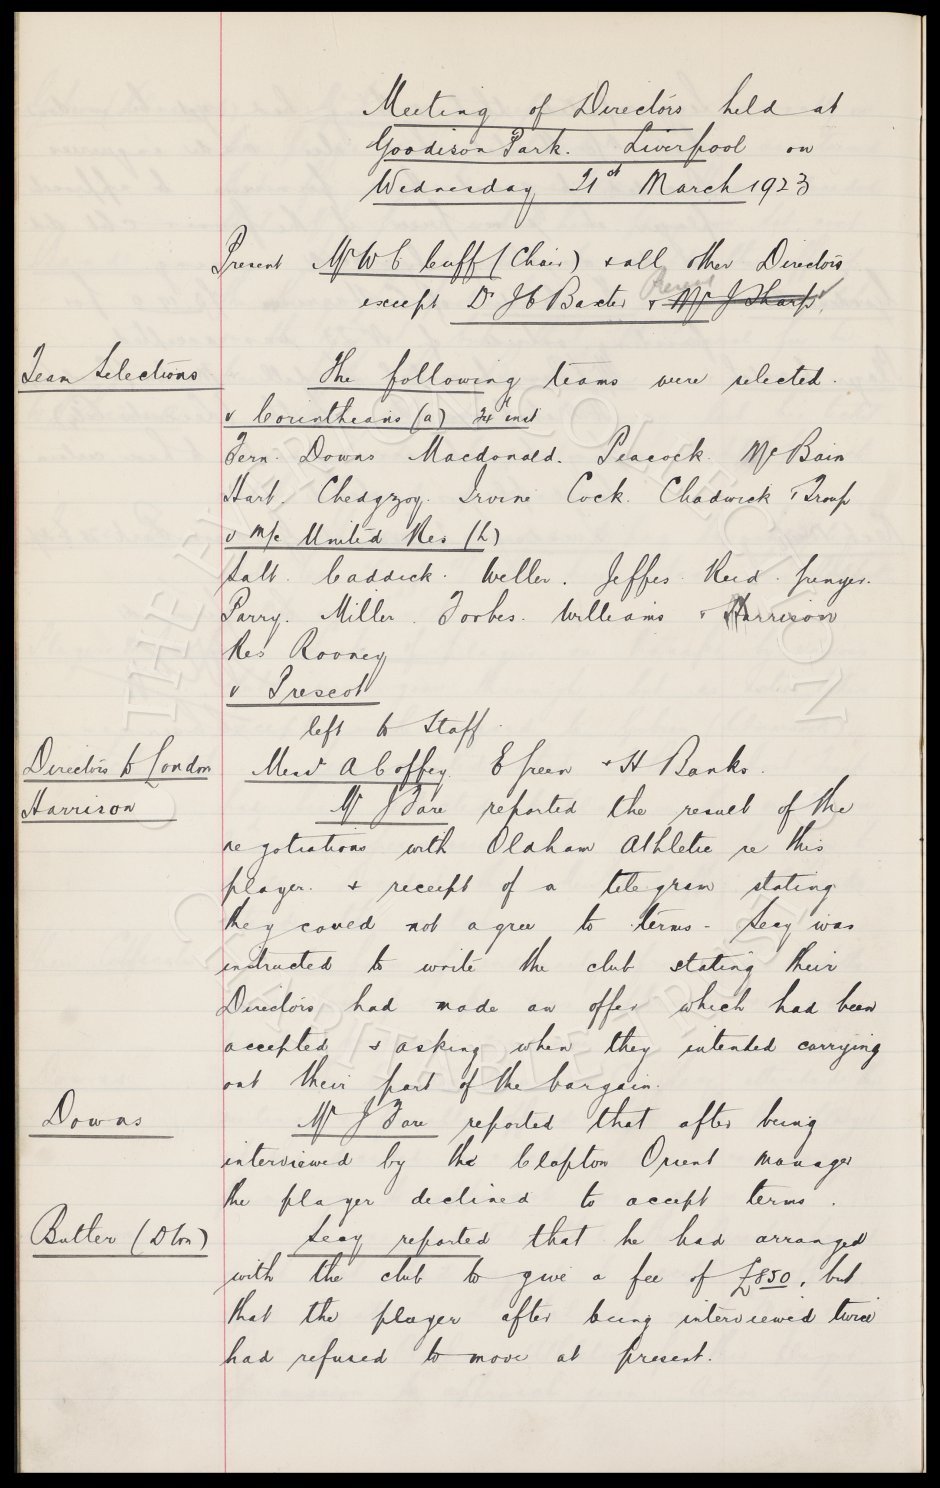 Meeting of Directors held at
Goodison Park. Liverpool on
Wednesday 21st March 1923
Present Mr W C Cuff (Chair) & all other Directors
except Dr J C Baxter & Mr J Sharp.
Team Selections
The following teams were selected.
v Corinthians (a) 24th inst
Fern. Downs Macdonald. Peacock. McBain
Hart. Chedgzoy. Irvine Cock. Chadwick & Troup
v M/c United Res (h)
Salt. Caddick. Weller. Jeffes. Reid. Grenyer.
Parry. Miller. Forbes. Williams & Harrison
Res Rooney
v Prescot
left to Staff.
Directors to London
Messrs A Coffey. E Green & H Banks.
Harrison
Mr J Fare reported the result of the
negotiations with Oldham Athletic re this
player. & receipt of a telegram stating
they could not agree to terms - Secy was
instructed to write the club stating their
Directors had made an offer which had been
accepted & asking when they intended carrying
out their part of the bargain.
Downs
Mr J Fare reported that after being
interviewed by the Clapton Orient manager
the player declined to accept terms.
Butler (Dton)
Secy reported that he had arranged
with the club to give a fee of £850, but
that the player after being interviewed twice
had refused to move at present.
THE EVERTON COLLECTION
CHARITABLE TRUST